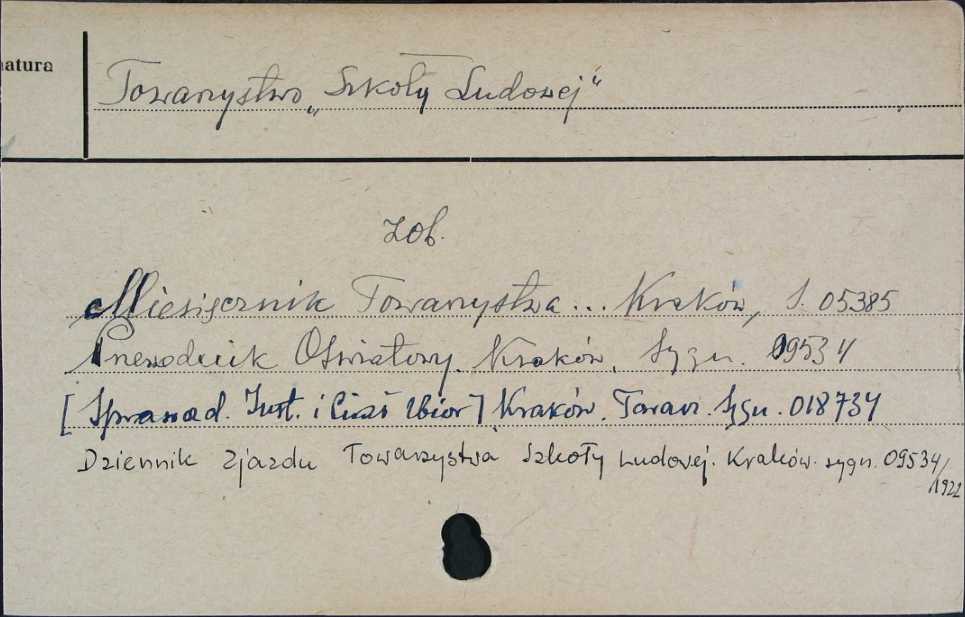 natura
Towarzystwo „Szkoły Ludowej"
zob.
Miesięcznik Towarzystwa... Kraków, S. 05385
Przewodnik Oświatowy. Kraków, Sygn. 09534
[Sprawozd. Inst. i Zbior] Kraków. Sygn. 018734
Dziennik Zjazdu Towarzystwa Szkoły Ludowej. Kraków. sygn. 09534/
1922